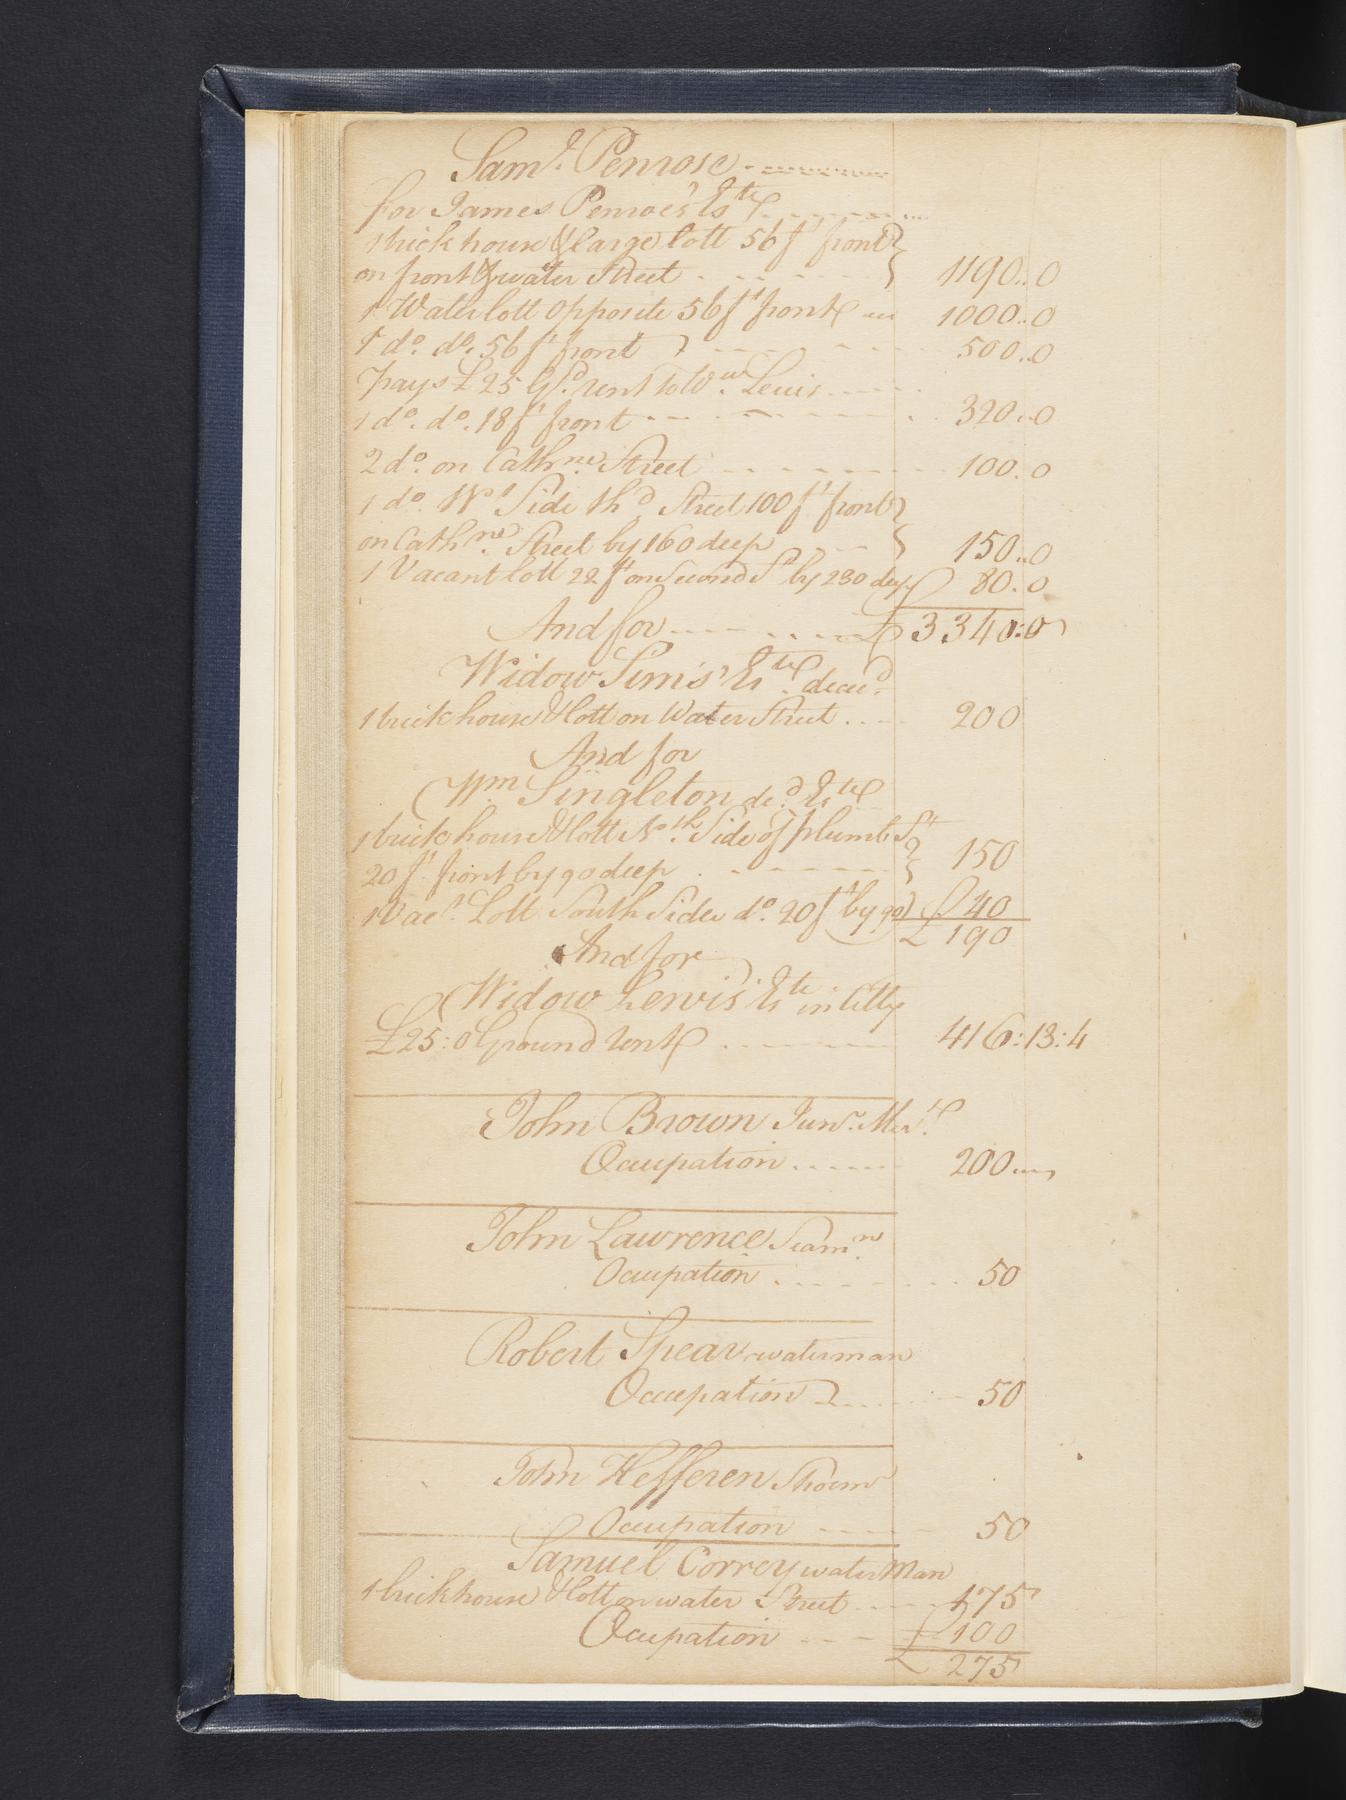 Saml. Penrose
for James Penroe's Este
1 brick house & large lott 56 ft front
on front & water Street 1190..0
1 Water lott opposite 56 ft front 1000..0
1 do. do. 56 ft front 500..0
pays £25 Gd. rent to Wm Lewis
1 do. do. 18 ft front 320..0
2 do. on Cathne Street 100.0
1 do. Wt Side thd Street 100 ft front
on Cathne Street by 160 deep 150..0
1 Vacant lott 22 ft on Second St by 230 deep 80.0
And for £ 3340:0
Widow Sims' Este decd
1 brick house & lott on Water Street 200
And for
Wm Singleton decd Este
1 brick house & lott Noth Side of plumb St
20 ft front by 90 deep 150
1 Vact. Lott South Side do. 20 ft by 90 40
£ 190
And for
Widow Lewis' Este in Citty
£25:0 Ground rent 416:13:4
John Brown Junr. Mert
Ocupation 200
John Lawrence Seamn
Ocupation 50
Robert Spear waterman
Occupation 50
John Hefferen Shoemr
Occupation 50
Samuel Correy water Man
1 brick house & lott on water Street 175
Ocupation 100
£ 275